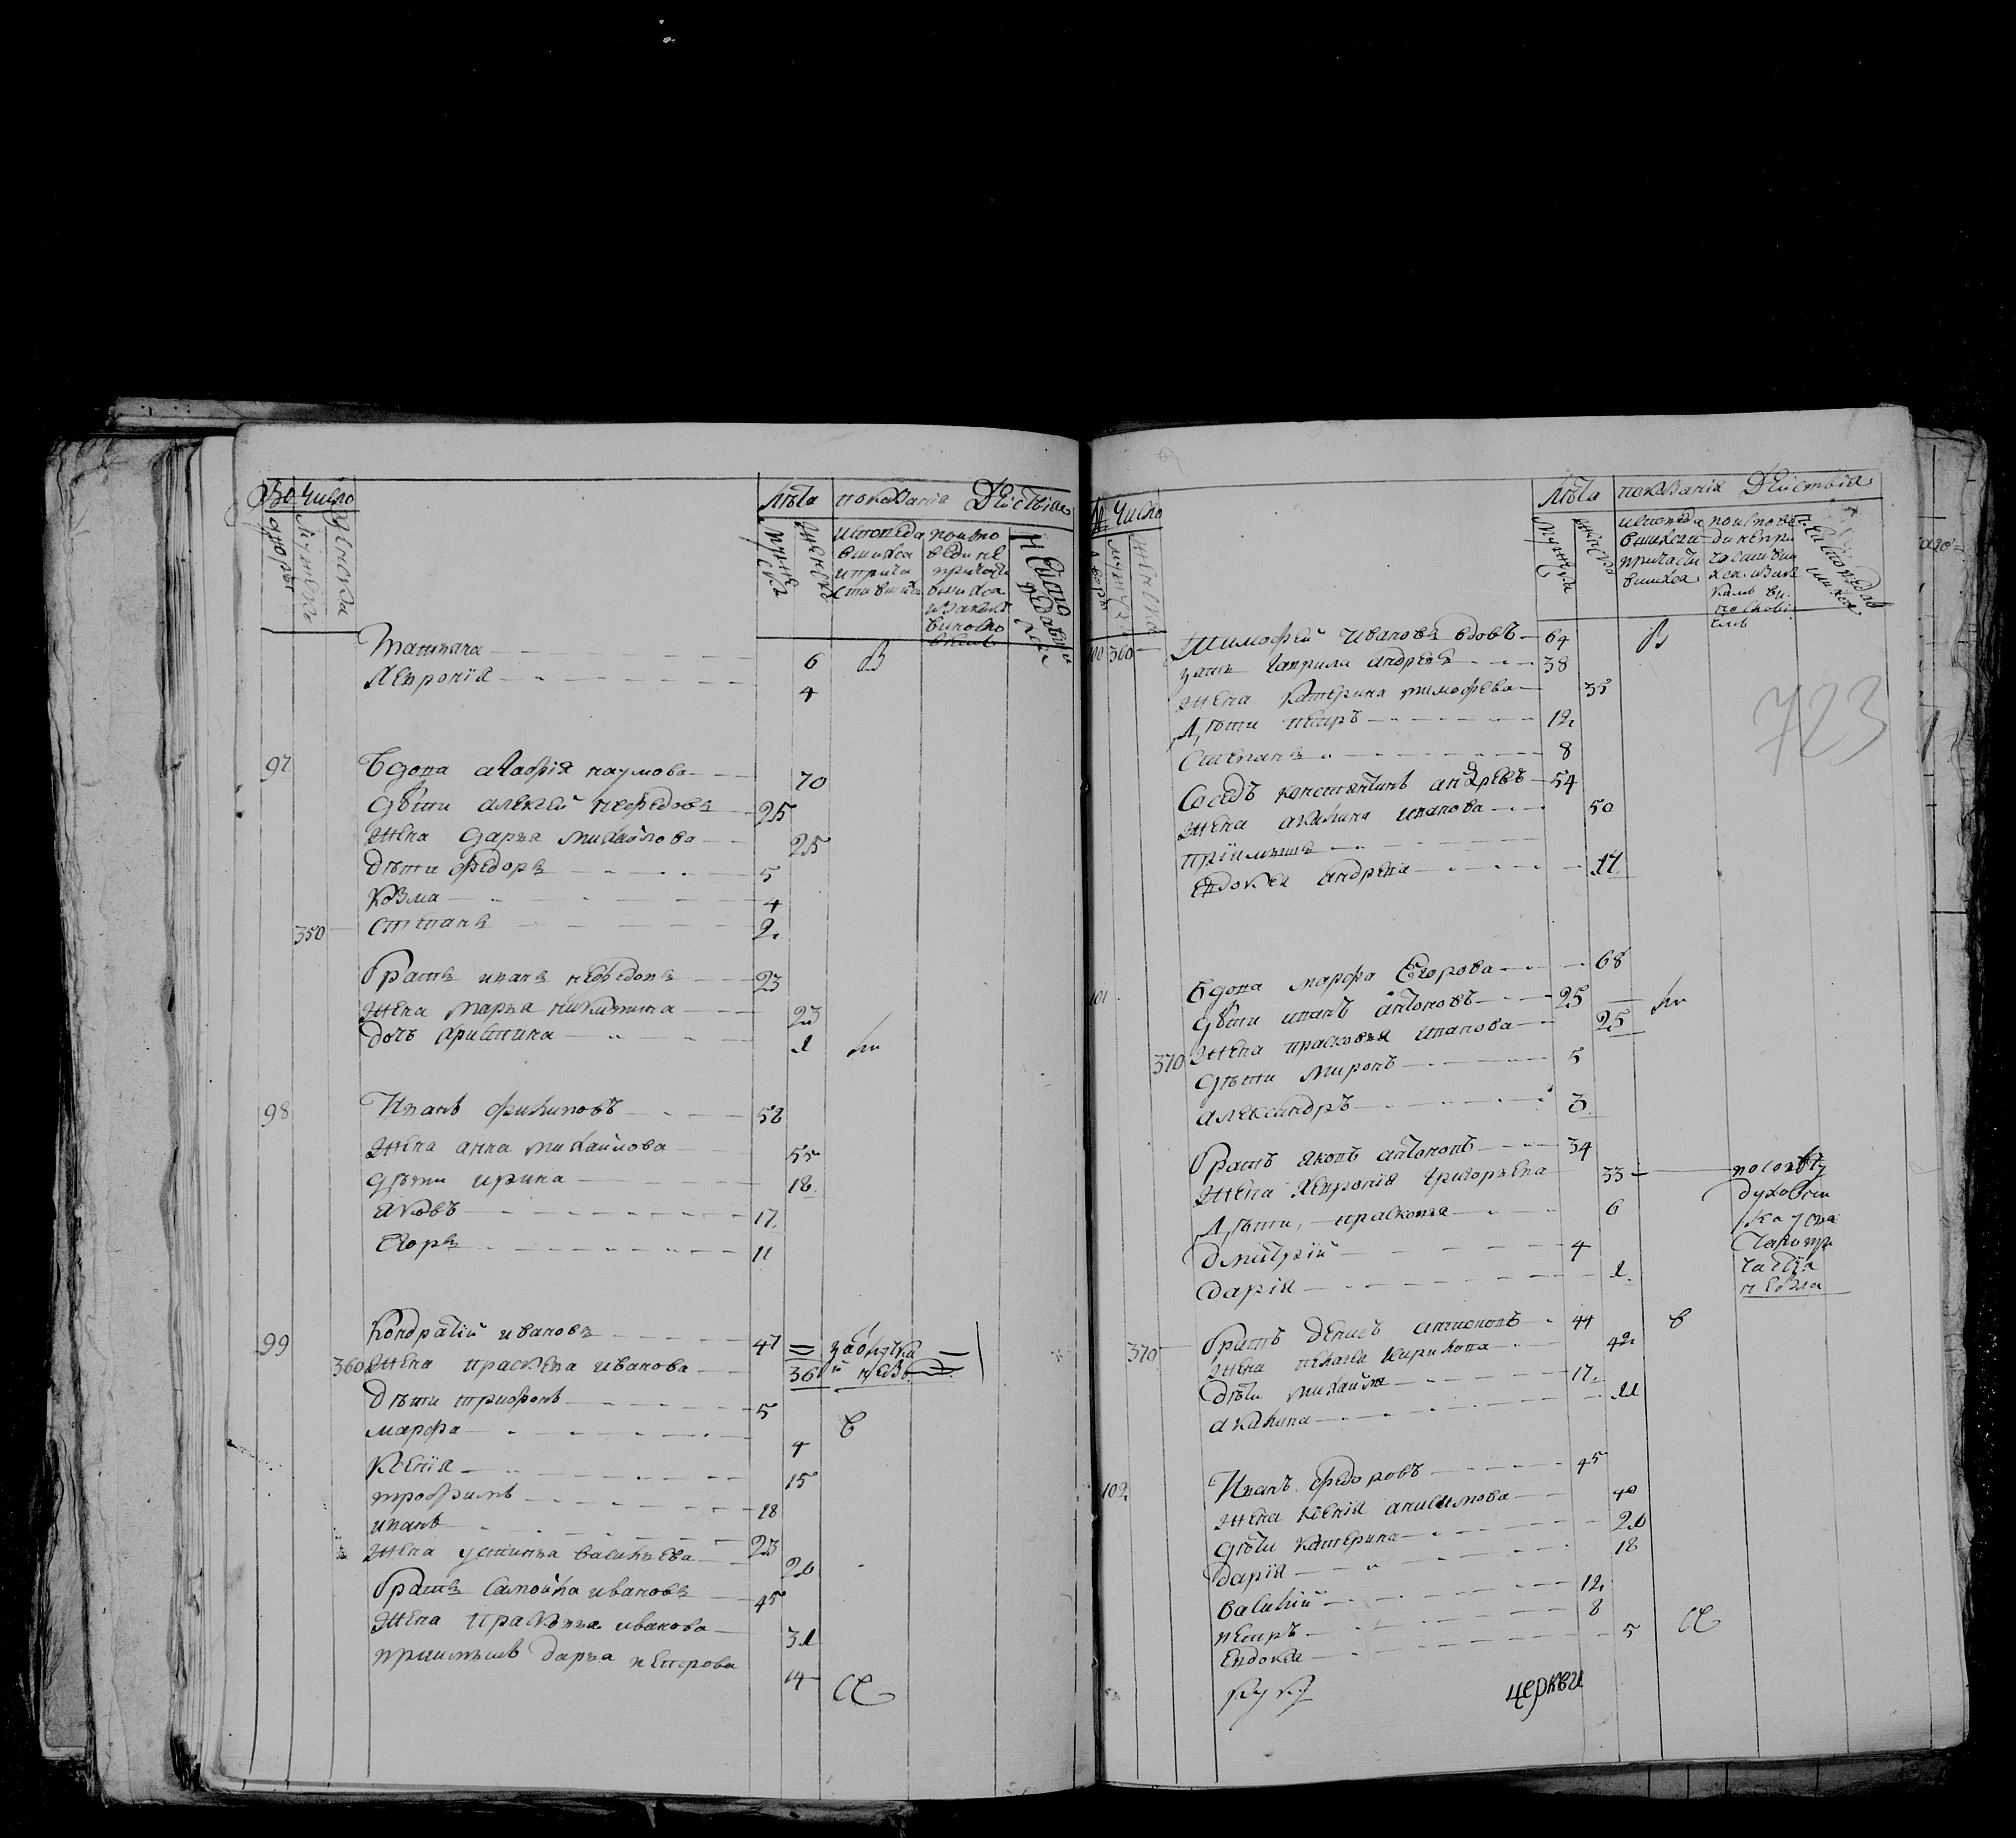 Во Число Лѣта показаніа Дѣиствіа
дворы Мужеска Женски Мужеска Женска
исповеда
вшихса
и прича
ставшихса
Татиана 6
Хевронія 4
97 Вдова агафія наумова 70
дѣти алексей нефедовъ 25
Жена дарья михайлова 25
Дѣти федоръ 5
Козма 4
350 степанъ 2
братъ иванъ нефедовъ 23
Жена марья никитина 23
дочь христина 1
98 Иванъ филиповъ 58
Жена анна михайлова 55
дѣти ирина 18
яковъ 17
Егоръ 11
99 Кондратій ивановъ 47
360 Жена прасковья иванова 36
Дѣти трифонъ 5
марфа 4
Ксенія 15
трофимъ 18
иванъ 23
Жена устинья васильева 20
братъ самойла ивановъ 45
Жена прасковья иванова 31
приимышъ дарья петрова 14
Число Лѣта показанія Дѣиствіа
100 360 Тимофей ивановъ вдовъ 64
зять гаврила андреевъ 38
Жена катерина тимофева 35
Дѣти петръ 12
степанъ 8
723
Соседъ константинъ андревъ 54
Жена акилина иванова 50
пріимышъ
Евдокея андрева 17
101 Вдова марфа Егорова 68
дѣти иванъ антоновъ 25
370 Жена прасковья иванова 25
дѣти миронъ 5
александръ 3
братъ яковъ антоновъ 34
Жена Хевронія григорьева 33
Дѣти прасковья 6
Дмитрій 4
Дарія 1
370 братъ Денисъ антоновъ 44
Жена пелагея кирилова 42
Дѣти михайла 17
акилина 11
102 Иванъ федоровъ 45
Жена ксенія анисимова 40
дѣти катерина 20
дарія 18
василій 12
петръ 8
Евдокея 5
церкви